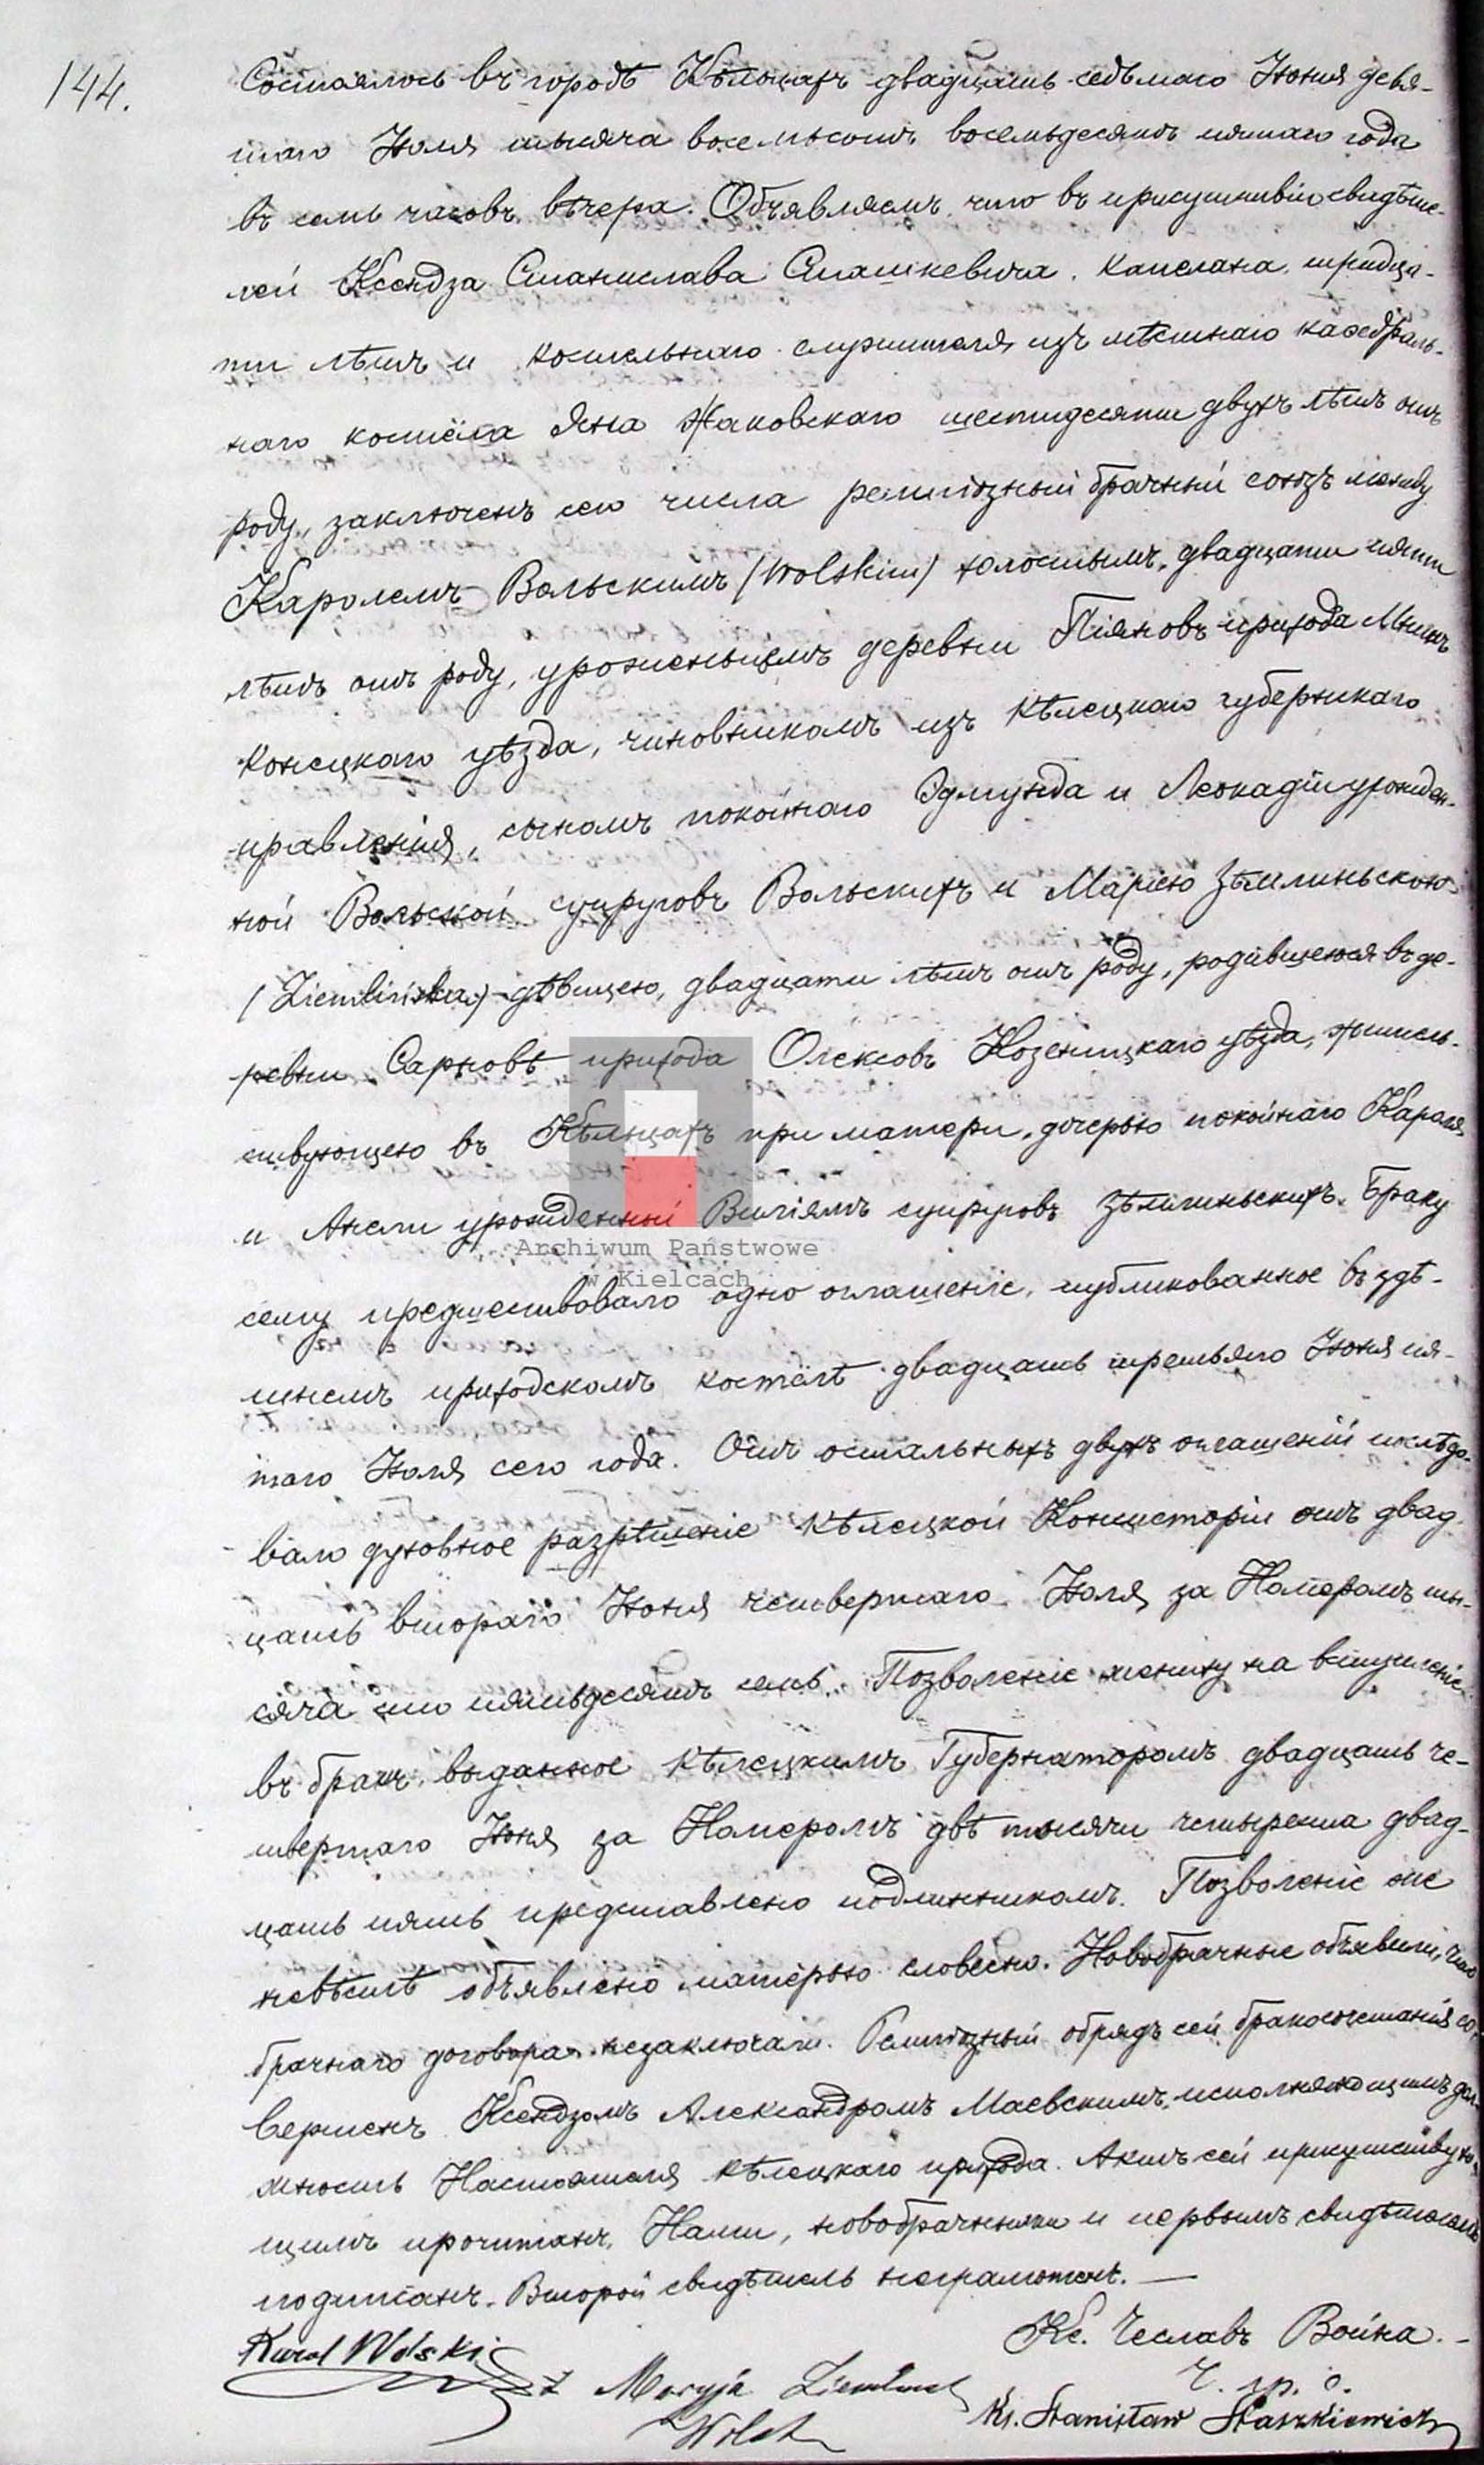 144.
Состоялось въ городѣ Кѣльцахъ двадцать седьмаго Іюня девя-
таго Іюля тысяча восемьсотъ восемьдесятъ пятаго года
въ семь часовъ вечера. Объявляемъ что въ присутствіи свидѣте-
лей Ксендза Станислава Сташкевича, капелана, тридца-
ти лѣтъ и костельнаго служителя изъ мѣстнаго каѳедраль-
наго костёла Яна Жаковскаго шестидесяти двухъ лѣтъ отъ
роду, заключенъ сего числа религіозный брачный союзъ между
Каролемъ Вольскимъ /Wolskim/ холостымъ, двадцати пяти
лѣтъ отъ роду, уроженцемъ деревни Піяновъ прихода Мнинъ
Конецкаго уѣзда, чиновникомъ изъ Кѣлецкаго губернскаго
правленія, сыномъ покойнаго Эдмунда и Леокадіи урожден-
ной Вольской супруговъ Вольскихъ и Маріею Зѣмлиньскою
/Ziemlińska/ дѣвицею, двадцати лѣтъ отъ роду, родившеюся въ де-
ревни Сарновѣ прихода Олексовъ Козеницкаго уѣзда, жительс-
твующею въ Кѣльцахъ при матери, дочерью покойнаго Кароля
и Анели урожденной Виліямъ супруговъ Зѣмлиньскихъ. Браку
сему предшествовало одно оглашеніе, публикованное въ здѣ-
шнемъ приходскомъ костёлѣ двадцать третьяго Іюня пя-
таго Іюля сего года. Отъ остальныхъ двухъ оглашеній послѣдо-
вало духовное разрѣшеніе Кѣлецкой Консисторіи отъ двад-
цать втораго Іюня четвертаго Іюля за Номеромъ ты-
сяча сто пятьдесятъ семь. Позволеніе жениху на вступленіе
въ бракъ выданное Кѣлецкимъ Губернаторомъ двадцать че-
твертаго Іюня за Номеромъ двѣ тысячи четыреста двад-
цать пять представлено подлинникомъ. Позволеніе же
невѣстѣ объявлено матерью словесно. Новобрачные объявили, что
брачнаго договора незаключали. Религіозный обрядъ сей бракосочетанія со-
вершенъ Ксендзомъ Александромъ Маевскимъ, исполняющимъ дол-
жность Настоятеля Кѣлецкаго прихода. Актъ сей присутствую-
щимъ прочитанъ, Нами, новобрачными и первымъ свидѣтелемъ
подписанъ. Второй свидѣтель неграмотенъ. —
Кс. Чеславъ Война. -
Karol Wolski
Maryja
Ks. Stanisław Staszkiewicz
Archiwum Państwowe
w Kielcach